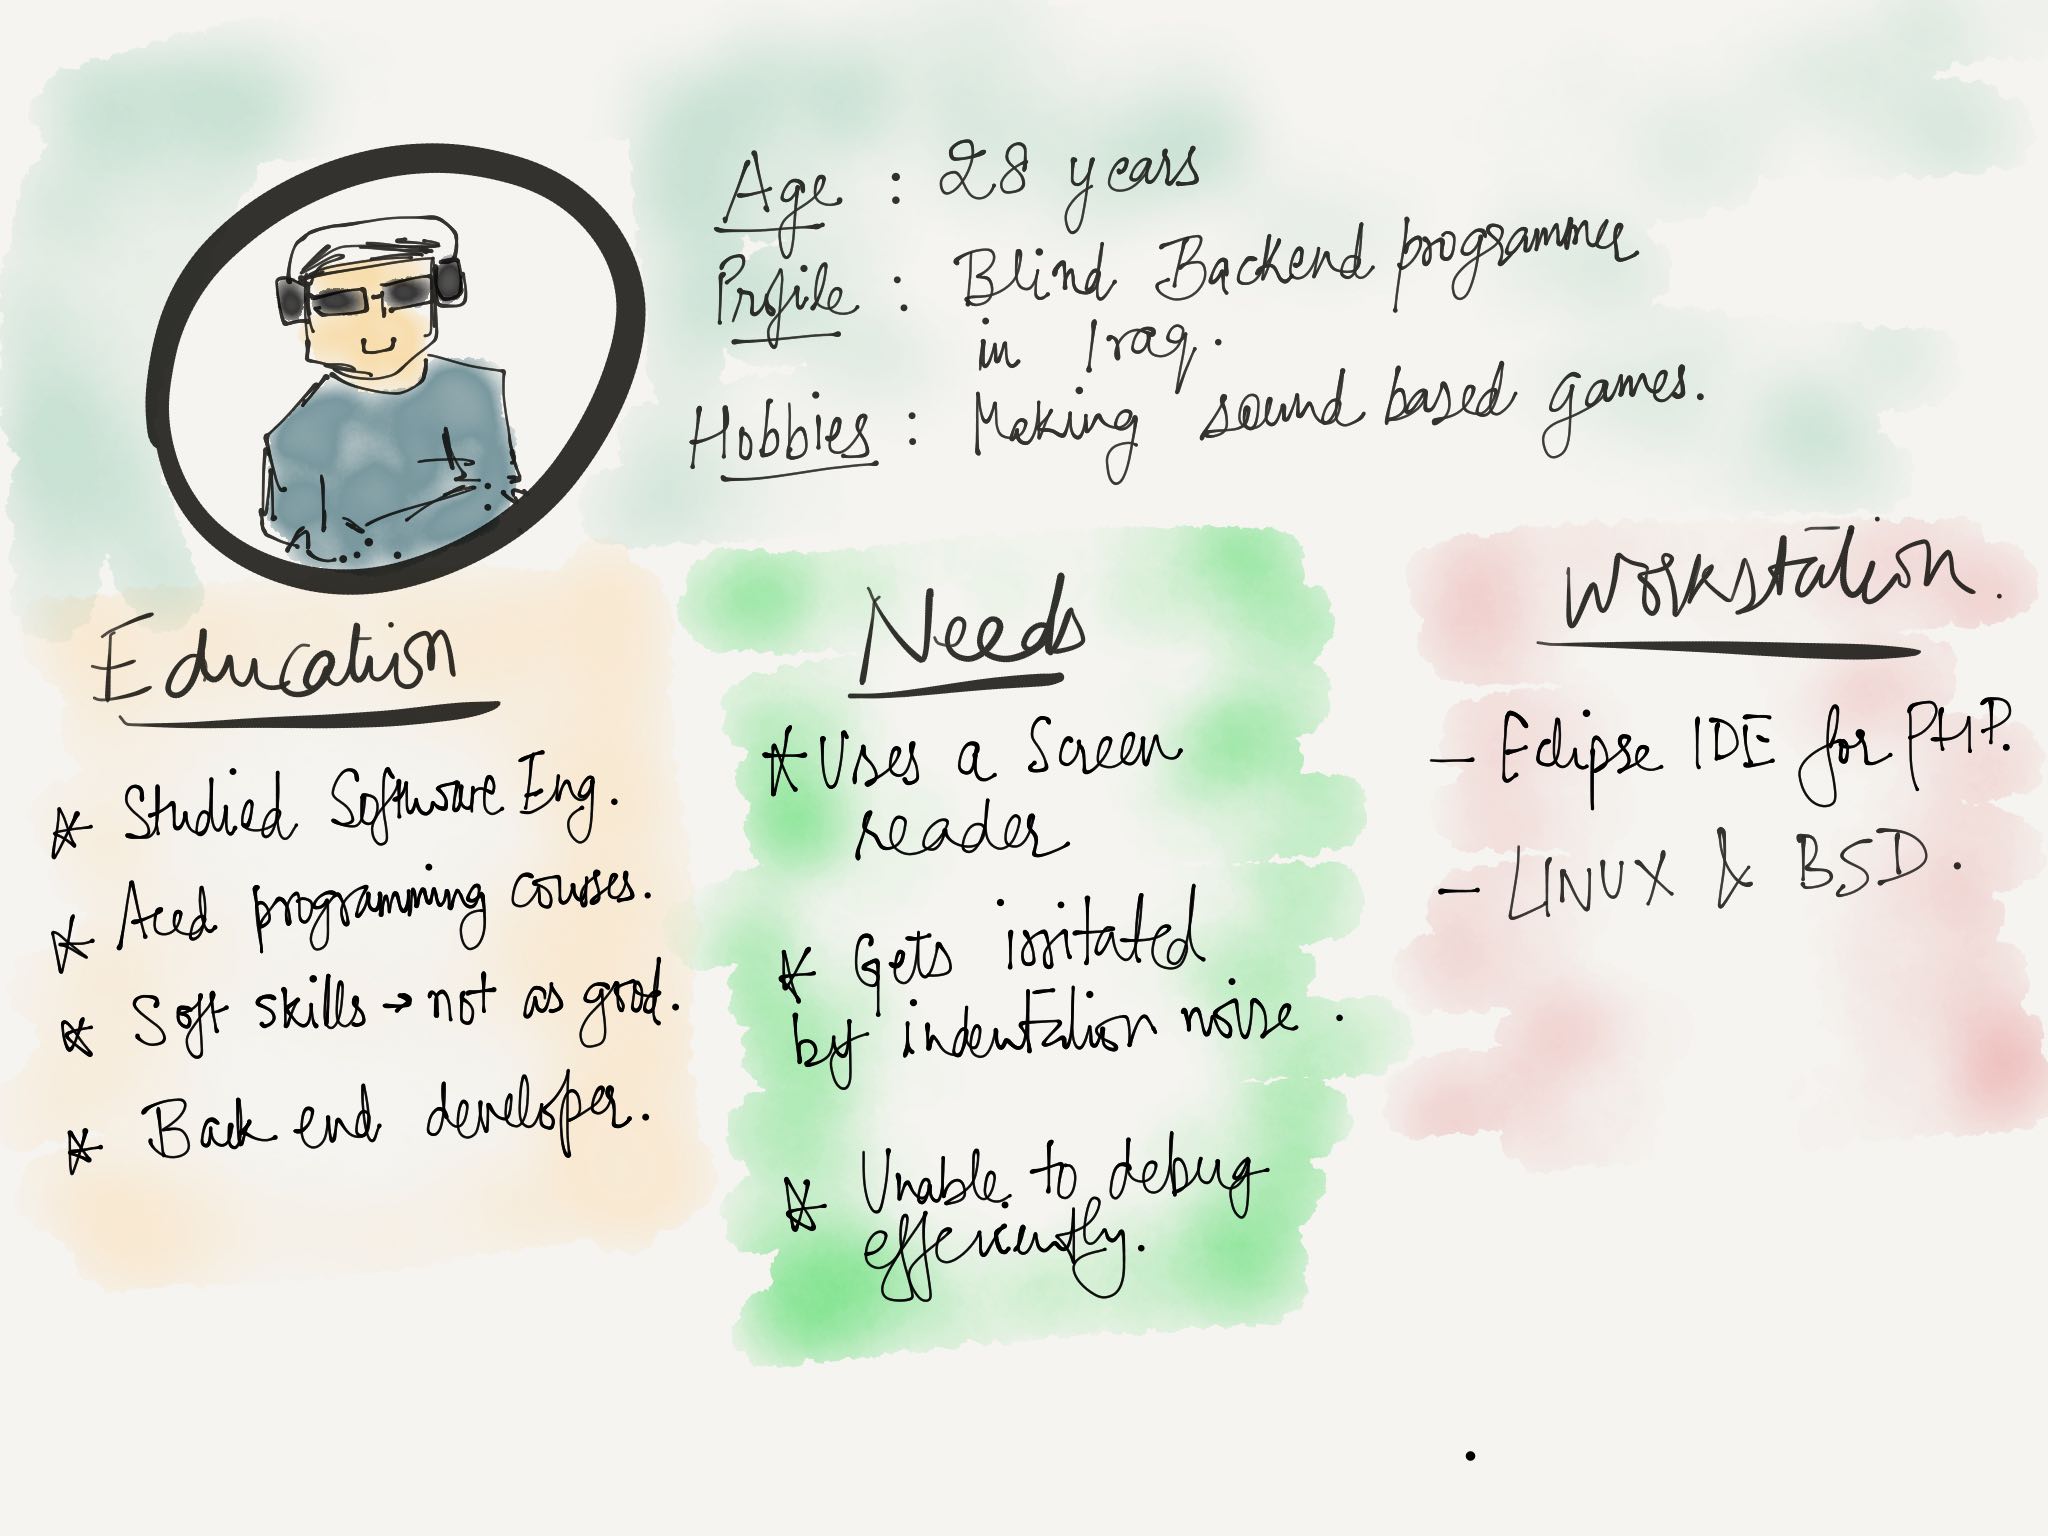 Age : 28 years
Profile : Blind Backend programmer
in Iraq.
Hobbies : Making sound based games.
Education
* Studied Software Eng.
* Aced programming courses.
* Soft skills → not as good.
* Back end developer.
Needs
* Uses a Screen
reader
* Gets irritated
by indentation noise.
* Unable to debug
efficiently.
Workstation.
- Eclipse IDE for PHP.
- LINUX & BSD.